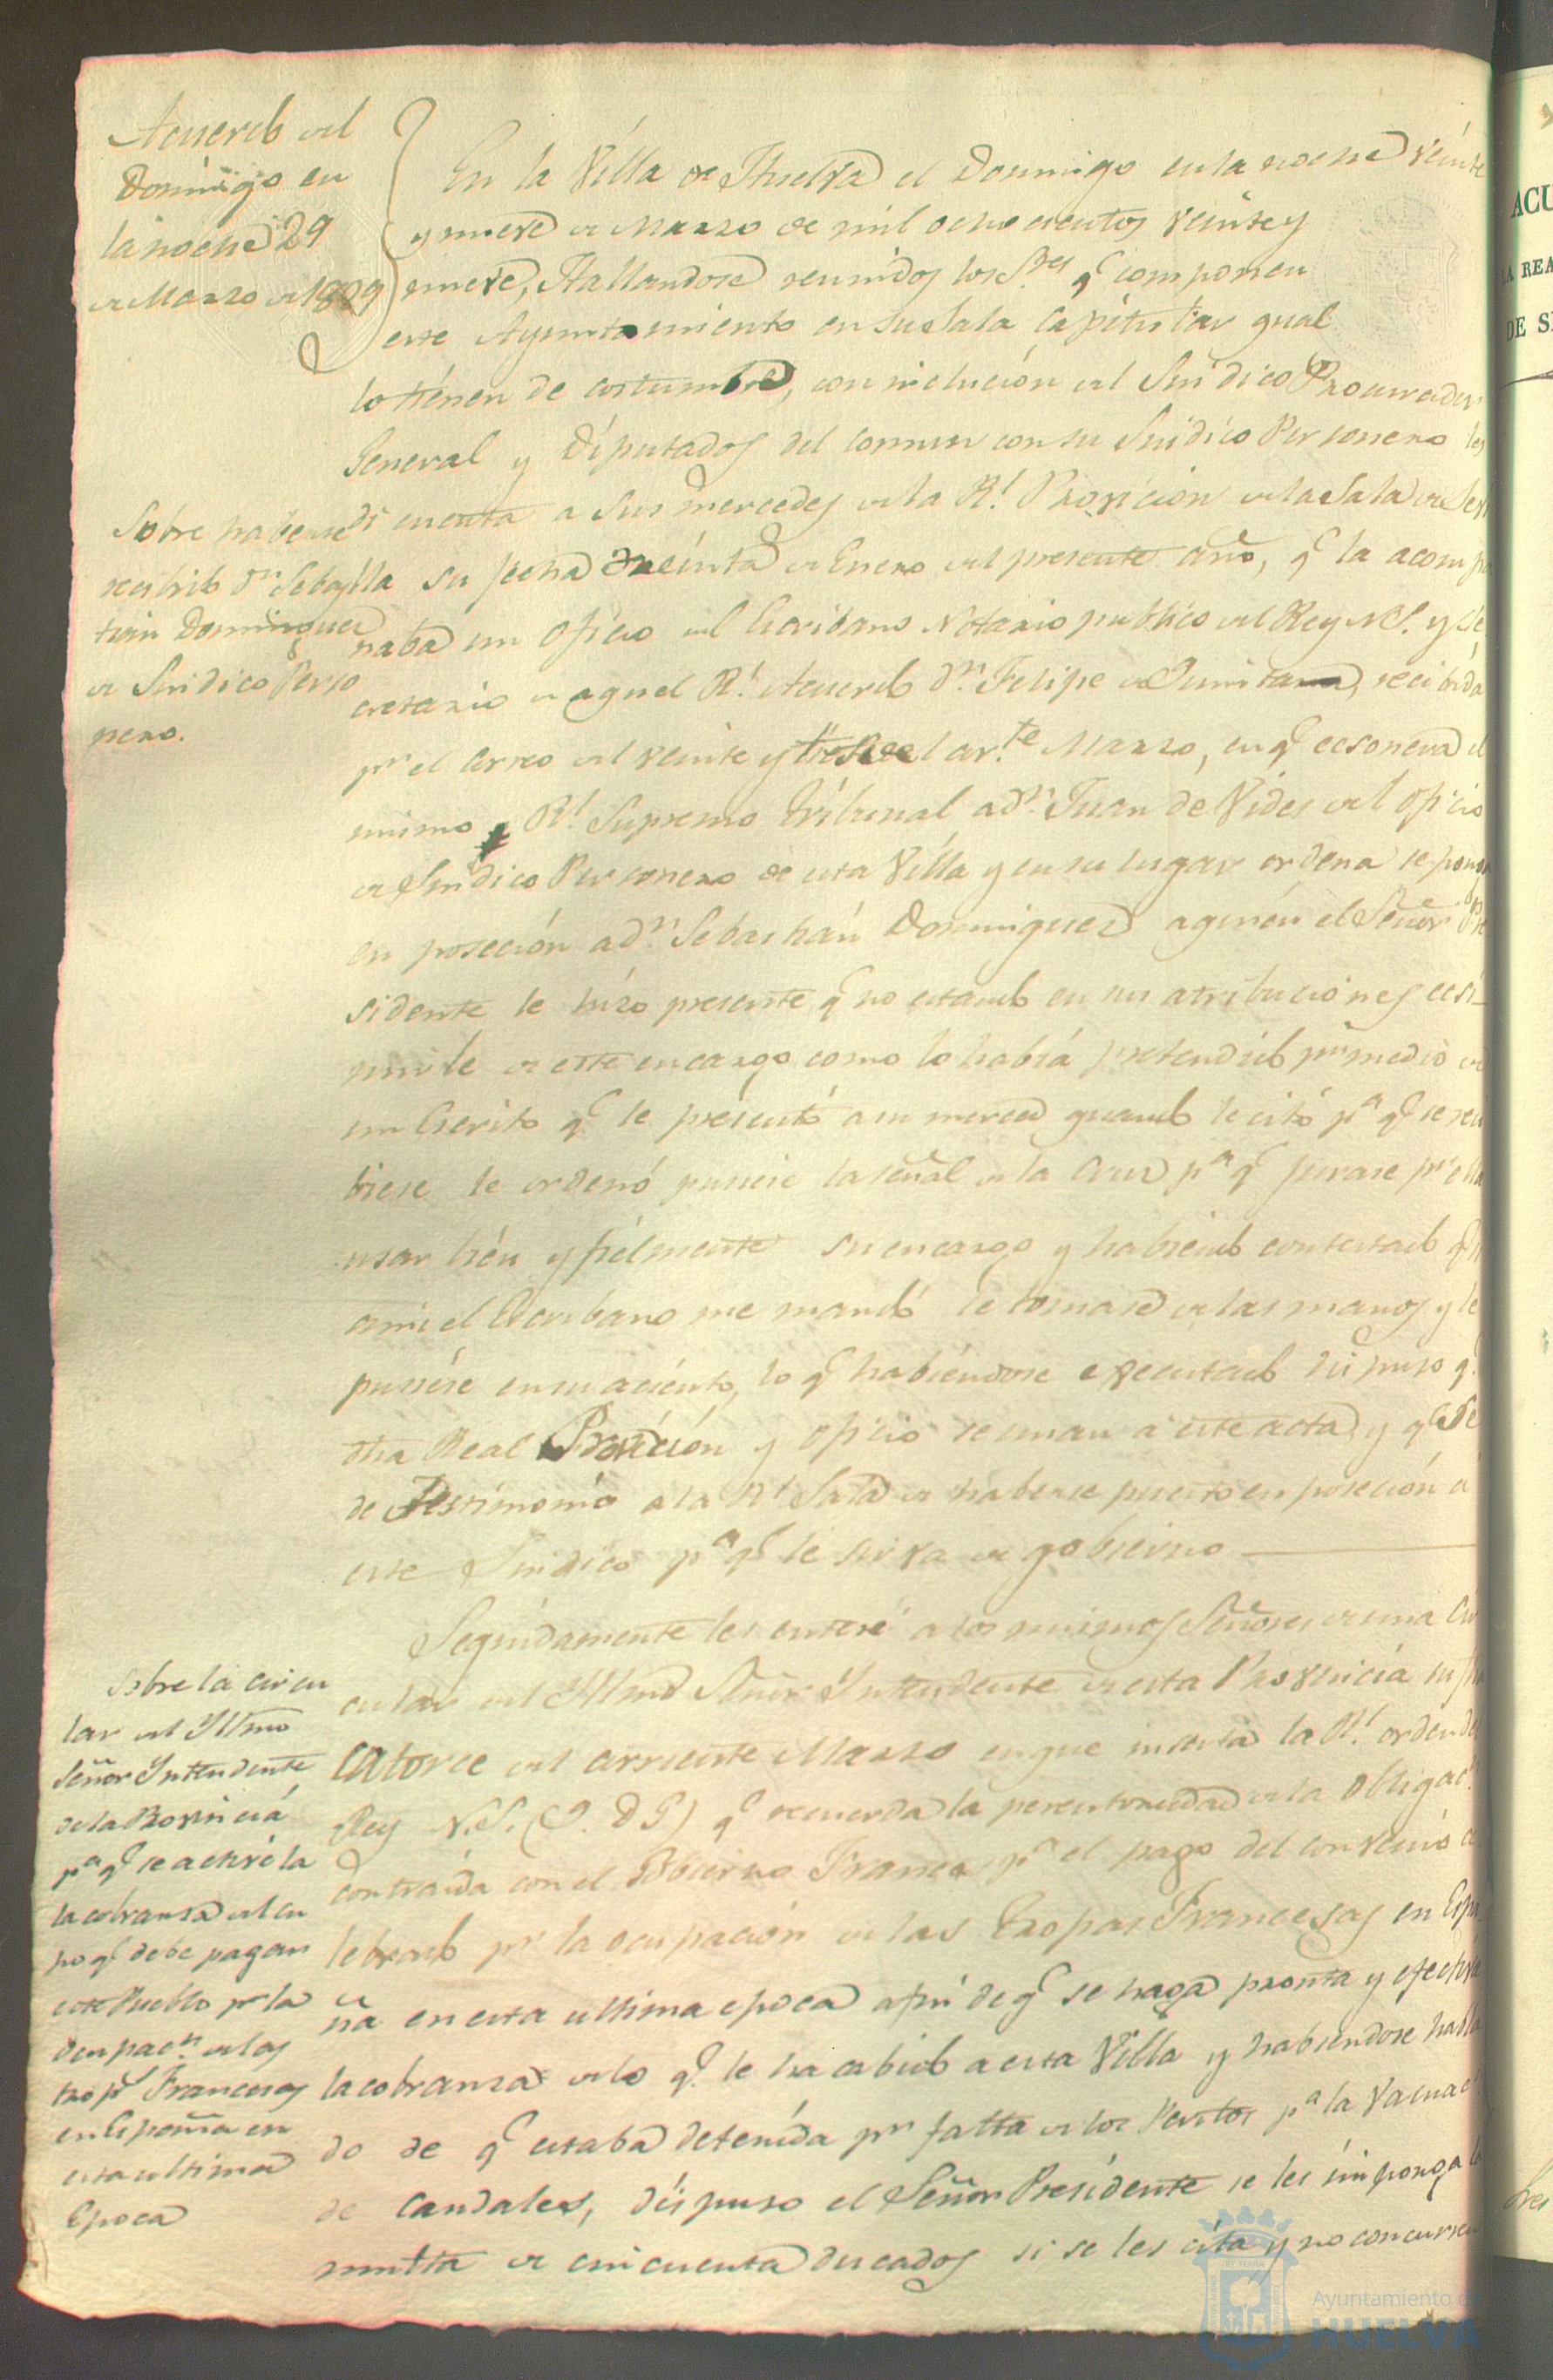 Acuerdo del
Domingo en
la noche 29
de Marzo de 1829
En la Villa de Huelva el Domingo en la noche veinte
y nueve de Marzo de mil ochocientos veinte y
nueve, Hallandose reunidos los S.res q.e componen
este Ayuntamiento en su Sala Capitular qual
lo tienen de costumbre, con inclucion del Sindico Procurador
General y Diputados del comun con su Sindico Personero les
Sobre haberse
recibido d.n Sebas
tian Dominguez
de Sindico Perso
nero.
di cuenta a sus mercedes de la R.l Provicion de la Sala de Sevi
lla su fecha treinta de Enero del presente año, q.e la acompa
ñaba un oficio del Escribano Notario publico del Rey N.S. y Se
cretario de aquel R.l Acuerdo d.n Felipe de Quintana, recibida
p.r el Correo del veinte y tres del cor.te Marzo, en q.e ecsonera el
mismo R.l Supremo Tribunal a d.n Juan de Vides del oficio
de Sindico Personero de esta Villa y en su lugar ordena se ponga
en poseción a d.n Sebastian Dominguez a quien el Señor Pre
sidente le hizo presente q.e no estando en sus atribuciones ecsi-
mirle de este encargo como lo habia pretendido p.r medio de
un Escrito q.e le presentó a su merced quando le citó p.a q.e se reci
biese le ordenó pusiese la señal de la Cruz p.a q.e jurase p.r ella
usar bien y fielmente su encargo y habiendo contestado q.e
a mi el Escribano me mandó le tomase de las manos y le
pusiese en su aciento, lo q.e habiendose executado dispuso q.e
dha Real Provición y oficio se unan a este acta, y q.e se
de Testimonio a la R.l Sala de haberse puesto en poseción a
este Sindico p.a q.e le sirva de gobierno
Seguidamente les enteré a los mismos Señores de una Cir
Sobre la circu
lar del Yltmo
Señor Yntendente
de la Provincia
p.a q.e se active la
la cobranza del cu
po q.e debe pagar
este Pueblo p.r la
ocupac.n de las
trop.s Francesas
en España en
esta ultima
Epoca
cular del Yltmo Señor Yntendente de esta Provincia su fha
catorce del corriente Marzo en que inserta la R.l orden del
Rey N.S. (Q. D G) q.e recuerda la perentoriedad de la Obligac.n
contraida con el Gobierno Frances p.a el pago del convenio ce
lebrado p.r la ocupación de las Tropas Francesas en Espa
ña en esta ultima epoca a fin de q.e se haga pronta y efectiva
la cobranza de lo q.e le ha cabido a esta Villa y habiendose habla
do de q.e estaba detenida p.r falta de los Peritos p.a la
de caudales, dispuso el Señor Presidente se les imponga la
multa de cincuenta ducados si se les cita y no concurren
ACU
LA REA
DE SE
Ayuntamiento de
HUELVA